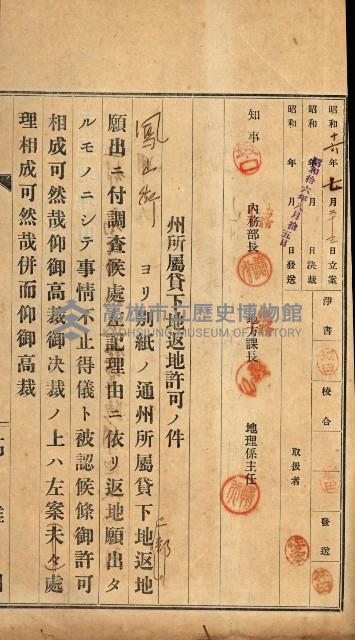 昭和十六年七月三十三日立案
昭和　年　月　日決裁
昭和拾六年八月拾五日
昭和　年　月　日發送
淨書
校合
發送
取扱者
知事
內務部長
地方課長
地理係主任
州所屬貸下地返地許可ノ件
鳳山街ヨリ別紙ノ通州所屬貸下地返地
願出ニ付調査候處左記理由ニ依リ返地願出タ
ルモノニシテ事情不止得儀ト被認候條御許可
相成可然哉仰御高裁御決裁ノ上ハ左案夫々處
理相成可然哉併而仰御高裁
高雄市立歷史博物館
KAOHSIUNG MUSEUM OF HISTORY